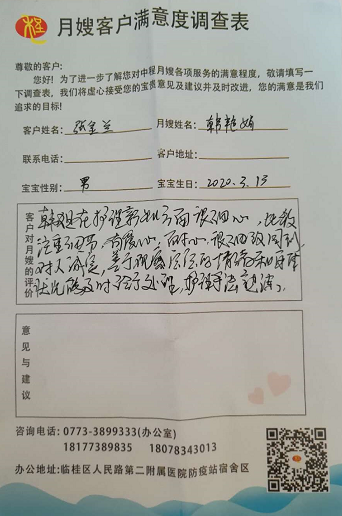 月嫂客户满意度调查表
尊敬的客户:
您好!为了进一步了解您对中程月嫂各项服务的满意程度,敬请填写一
下调查表,我们将虚心接受您的宝贵意见及建议并及时改进,您的满意是我们
追求的目标!
客户姓名:张金兰 月嫂姓名:韩艳娟
联系电话: 客户地址:
宝宝性别:男 宝宝生日:2020.3.13
客户对月嫂的评价
韩姐在护理新生儿方面很细心,比较
注重细节,有爱心,耐心,很细致周到
对人诚恳,善于观察宝宝的情况和身体
状况能及时给予处理,护理手法熟练。
意见与建议
咨询电话:0773-3899333(办公室)
18177389835 18078343013
办公地址:临桂区人民路第二附属医院防疫站宿舍区